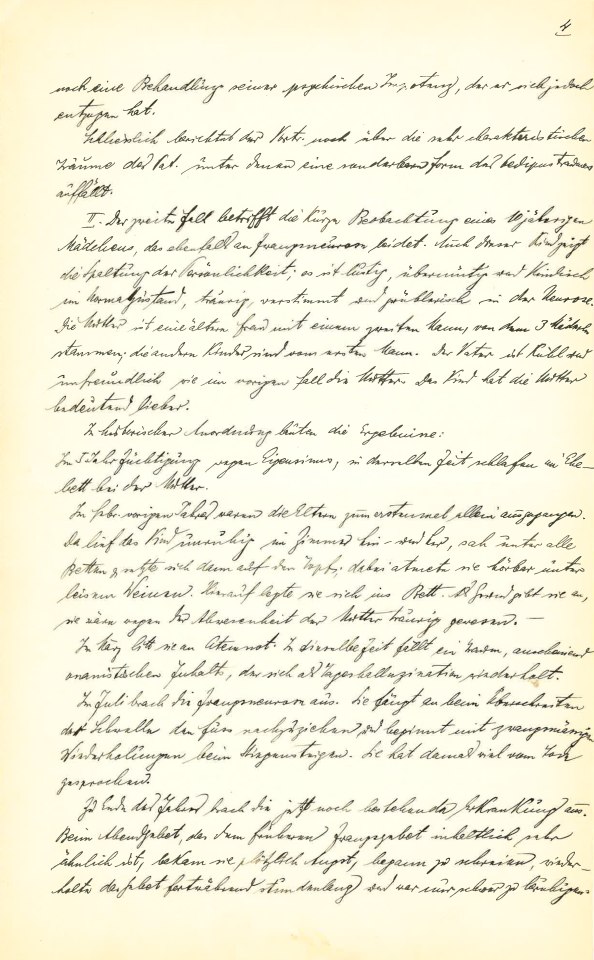 4
noch eine Behandlung seiner psychischen Impotenz, der er sich jedoch
entzogen hat.
Schliesslich berichtet der Vortr. noch über die sehr charakteristischen
Träume des Pat. unter denen eine sonderbare Form des Oedipustraumes
auffällt.
II. Der zweite Fall betrifft die kurze Beobachtung eines 10jährigen
Mädchens, das ebenfalls an Zwangsneurose leidet. Auch dieses Kind zeigt
die Spaltung der Persönlichkeit; es ist lustig, übermütig und kindisch
im Normalzustand, traurig, verstimmt und grüblerisch in der Neurose.
Die Mutter ist eine ältere Frau mit einem zweiten Mann, von dem 3 Mäderln
stammen; die andern Kinder sind vom ersten Mann. Der Vater ist kühl und
unfreundlich wie im vorigen Fall die Mutter. Das Kind hat die Mutter
bedeutend lieber.
In historischer Anordnung lauten die Ergebnisse:
Im 5 Jahr Züchtigung wegen Eigensinns, in derselben Zeit schlafen im Ehe-
bett bei der Mutter.
Im Febr. vorigen Jahres waren die Eltern zum erstenmal allein ausgegangen.
Da lief das Kind unruhig im Zimmer hin- und her, sah unter alle
Betten & setzte sich dann auf den Topf; dabei atmete sie hörbar unter
leisem Weinen. Hierauf legte sie sich ins Bett. Als Grund gibt sie an,
sie wäre wegen der Abwesenheit der Mutter traurig gewesen. –
Im März litt sie an Atemnot. In dieselbe Zeit fällt ein Traum, anscheinend
onanistischen Inhalts, der sich als Tageshalluzination wiederholt.
Im Juli brach die Zwangsneurose aus. Sie fängt an beim Überschreiten
der Schwelle den Fuss nachzuziehen und beginnt mit zwangmässigen
Wiederholungen beim Stiegensteigen. Sie hat damals viel vom Tode
gesprochen.
Zu Ende des Jahres brach die jetzt noch bestehende Erkrankung aus.
Beim Abendgebet, das dem früheren Zwangsgebet inhaltlich sehr
ähnlich ist, bekam sie plötzlich Angst, begann zu schreien, wieder-
holte das Gebet fortwährend stundenlang und war nur schwer zu beruhigen.